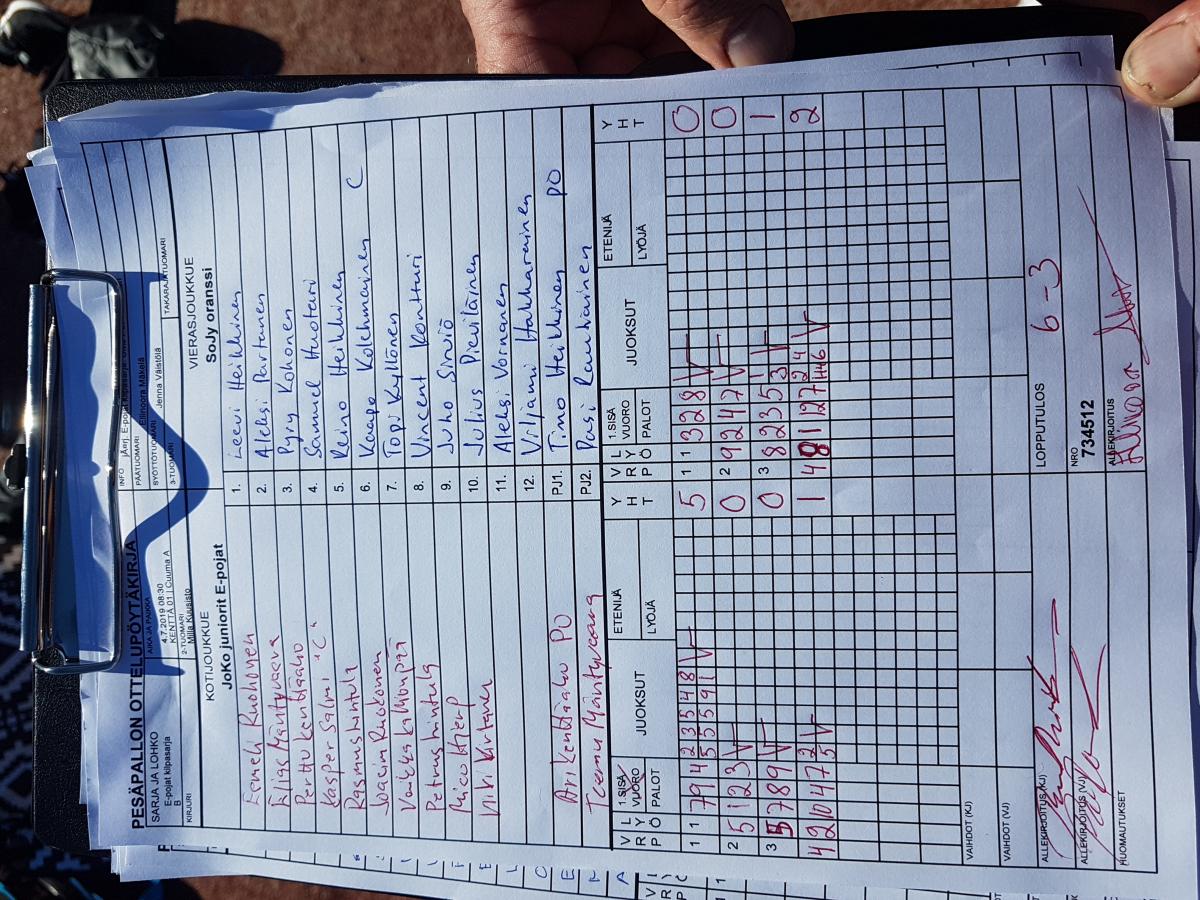 PESÄPALLON OTTELUPÖYTÄKIRJA
SARJA JA LOHKO
E-pojat kilpasarja
B
AIKA JA PAIKKA
4.7.2019 08:30
KENTTÄ 01 | Cuuma A
INFO
PÄÄTUOMARI
Ellinoora Mäkelä
SYÖTTÖTUOMARI
Jenna Väistölä
KIRJURI
2-TUOMARI
Milja Kuusisto
3-TUOMARI
TAKARAJATUOMARI
KOTIJOUKKUE
JoKo juniorit E-pojat
VIERASJOUKKUE
SoJy oranssi
Eemeli Ruohonen
1. Leevi Heikkinen
Elias Mäntyvaara
2. Aleksi Parttanen
Perttu Kenttäaho
3. Pyry Kohonen
Kasper Salmi "C"
4. Samuel Huoturi
Rasmus Mintula
5. Reino Heikkinen
Joakim Ruokonen
6. Kaapo Kolehmainen C
7. Topi Kyllönen
Petrus Mintula
8. Vincent Kontturi
9. Juho Sirviö
10. Julius Pieviläinen
11. Aleksi Vornanen
12. Viljami Hakkarainen
Ari Kenttäaho PO
PJ1. Timo Heikkinen PO
Teemu Mäntyvaara
PJ2. Pasi Rauhainen
V R P
L Y Ö
1.SISÄ VUORO
PALOT
JUOKSUT
ETENIJÄ
LYÖJÄ
Y H T
V R P
L Y Ö
1.SISÄ VUORO
PALOT
JUOKSUT
ETENIJÄ
LYÖJÄ
Y H T
1 1 7 9 4 2 3 5 4 8 V 5
5 5 5 9 1
1 1 3 2 8 V 0
2 5 1 2 3 V 0
2 9 2 4 7 V 0
3 5 7 8 9 V 0
3 8 2 3 5 V 1
4 2 10 4 7 V 1
1 4 8 1 12 7 V 2
VAIHDOT (KJ)
VAIHDOT (VJ)
LOPPUTULOS
6 - 3
ALLEKIRJOITUS (KJ)
NRO
734512
ALLEKIRJOITUS (VJ)
ALLEKIRJOITUS
HUOMAUTUKSET